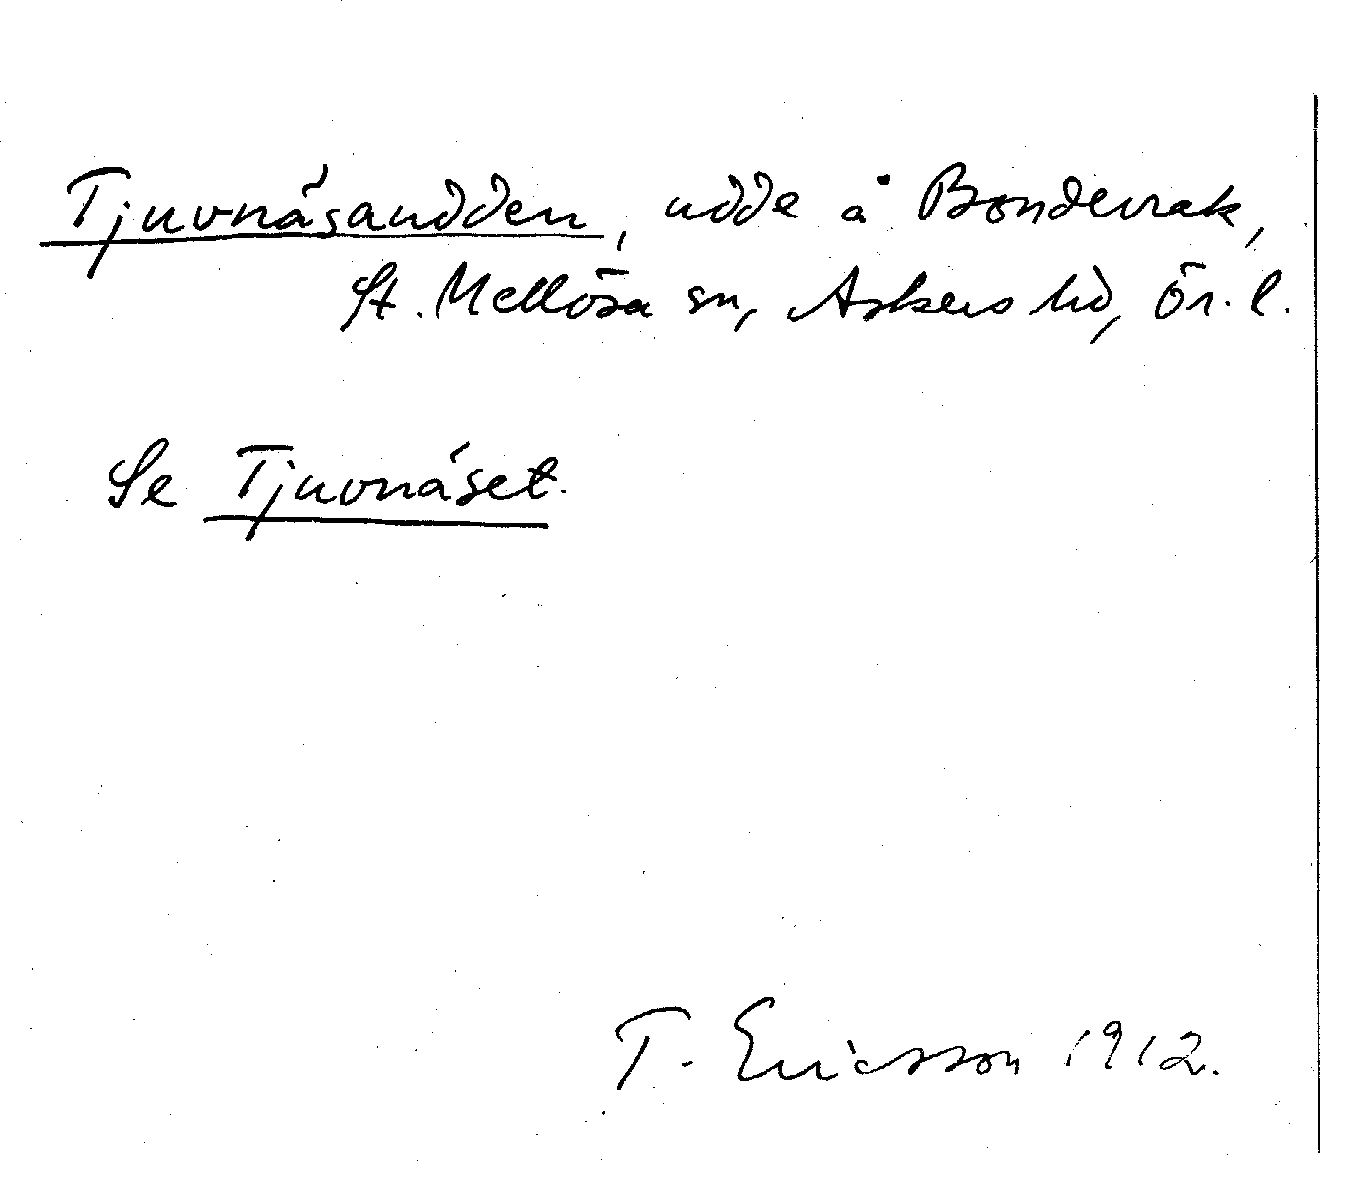 Tjuvnäsaudden, udde å Bondevrak,
St. Mellösa sn, Askers hd, Ör. l.
Se Tjuvnäset.
T. Ericsson 1912.